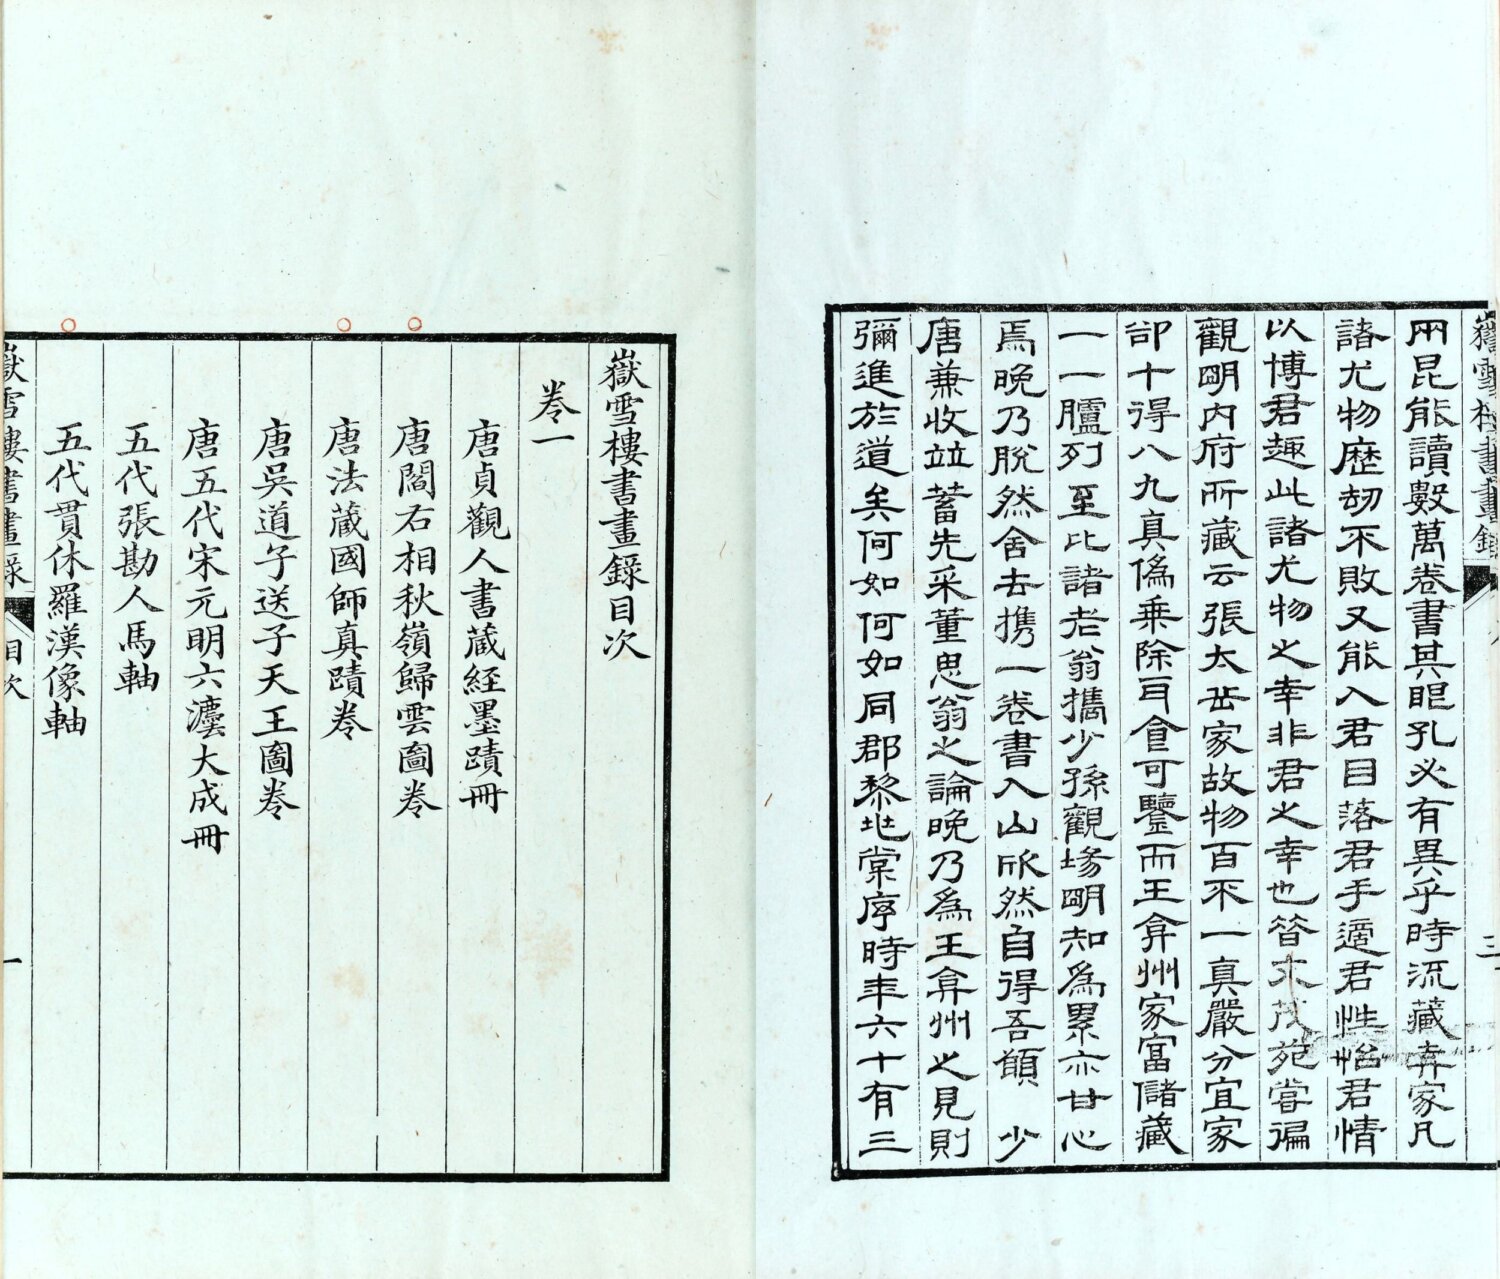 嶽雪樓書畫錄
三
兩昆能讀數萬卷書其眼孔必有異乎時流藏弆家凡
諸尤物歷劫不敗又能入君目落君手適君性怡君情
以博君趣此諸尤物之幸非君之幸也昝木茂苑嘗徧
觀明內府所藏云張太岳家故物百不一真嚴分宜家
卻十得八九真偽乘除耳食可鑒而王弇州家富儲藏
一一臚列至比諸老翁攜少孫觀場明知為累亦甘心
焉晚乃脫然舍去携一卷書入山欣然自得吾願少
唐兼收並蓄先采董思翁之論晚乃為王弇州之見則
彌進於道矣何如何如同郡黎兆棠序時年六十有三
嶽雪樓書畫錄目次
卷一
唐貞觀人書藏経墨蹟冊
唐閻右相秋嶺歸雲圖卷
唐法藏國師真蹟卷
唐吳道子送子天王圖卷
唐五代宋元明六瀍大成冊
五代張勘人馬軸
五代貫休羅漢像軸
嶽雪樓書畫錄
目次
一